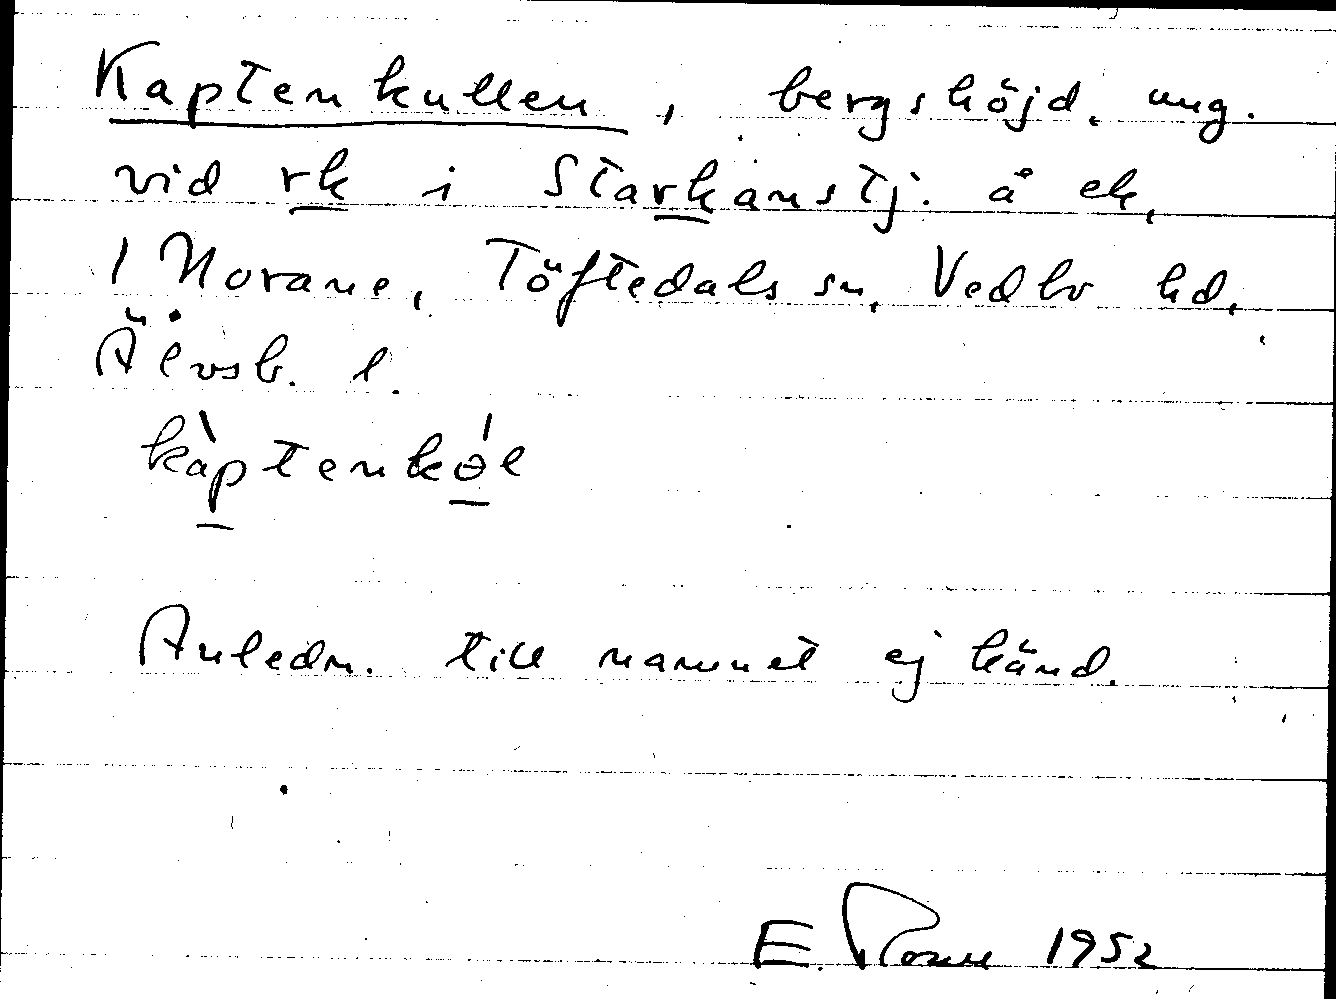 Kaptenkullen, bergshöjd, ung.
vid rk i Starkanstj. å ek,
1 Norane, Töftedals sn, Vedbo hd,
Älvsb. l.
kàptenkɵ́l
Anledn. till namnet ej känd.
E. 1952